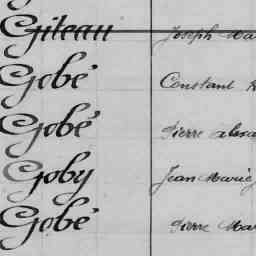 Giteau Joseph Ma
Gobé Constant
Gobé Pierre alexa
Goby Jean Marie
Gobé Pierre Mar